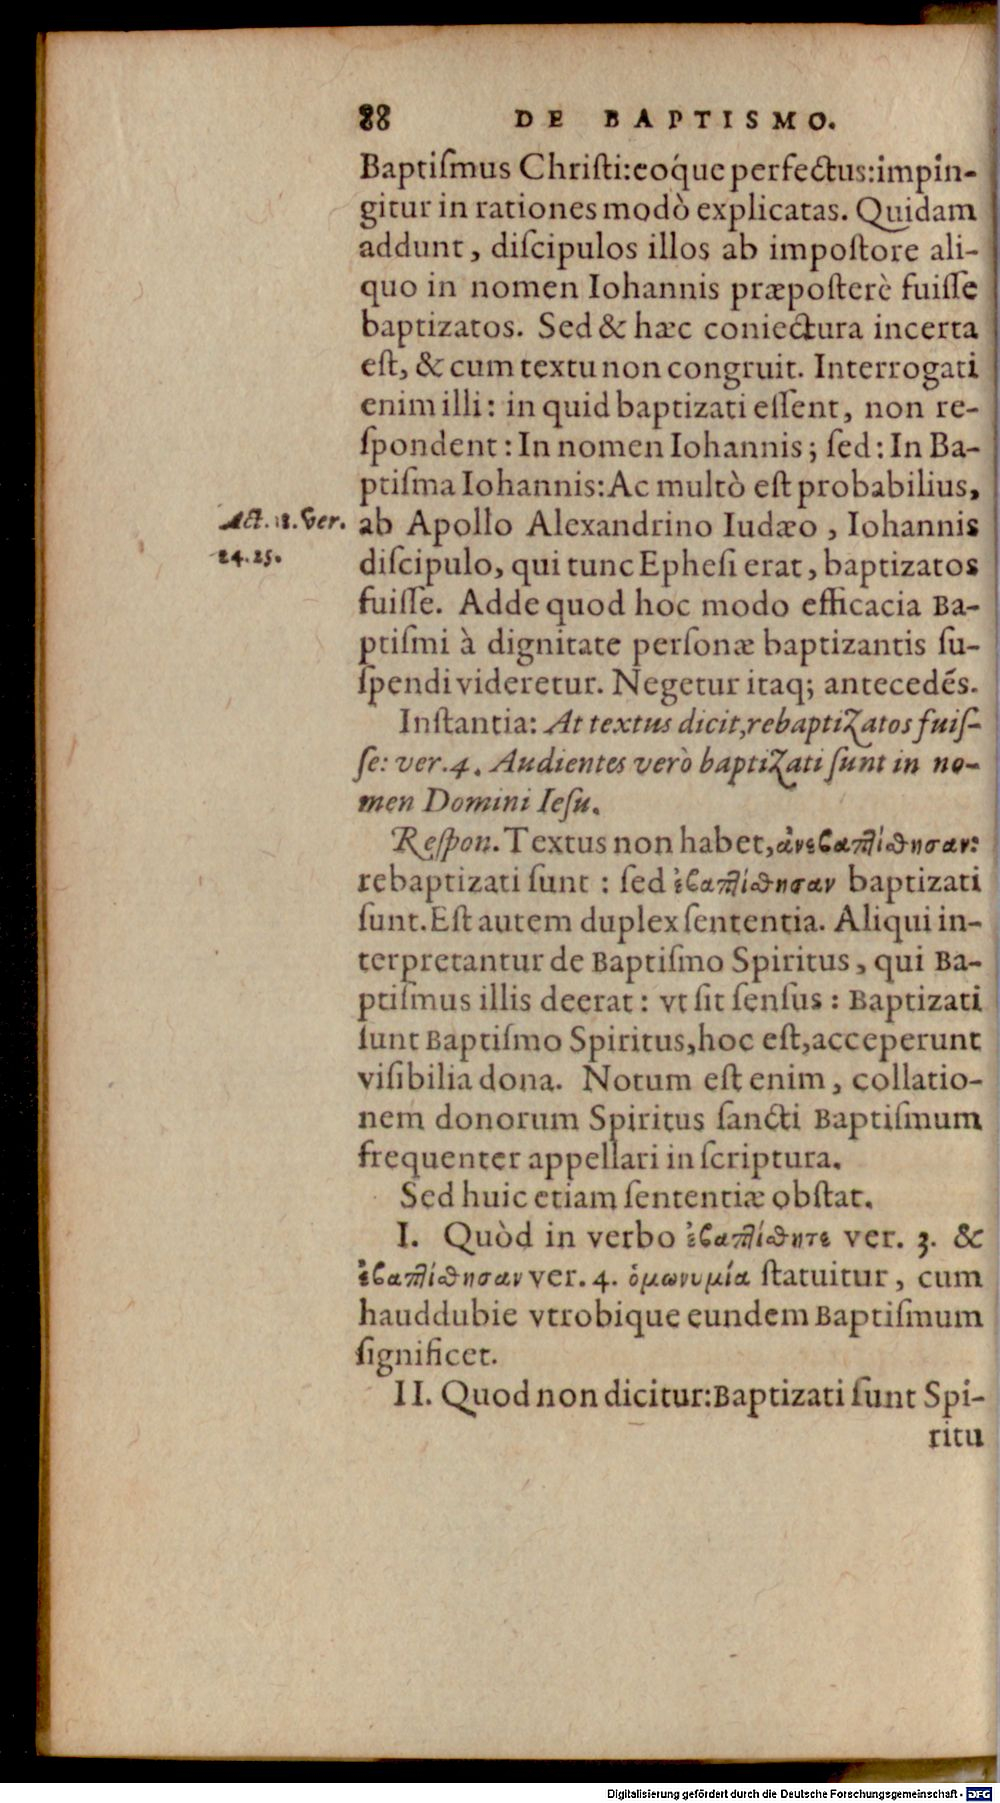 88 DE BAPTISMO.
Baptiſmus Chriſti:eoq́ue perfectus:impin-
gitur in rationes modò explicatas. Quidam
addunt, diſcipulos illos ab impoſtore ali-
quo in nomen Iohannis præpoſterè fuiſſe
baptizatos. Sed & hæc coniectura incerta
eſt, & cum textu non congruit. Interrogati
enim illi: in quid baptizati eſſent, non re-
ſpondent: In nomen Iohannis; ſed: In Ba-
ptiſma Iohannis: Ac multò eſt probabilius,
Act. 18. Ver. ab Apollo Alexandrino Iudæo, Iohannis
24.25. diſcipulo, qui tunc Epheſi erat, baptizatos
fuiſſe. Adde quod hoc modo efficacia Ba-
ptiſmi à dignitate perſonæ baptizantis ſu-
ſpendi videretur. Negetur itaq; antecedẽs.
Inſtantia: At textus dicit, rebaptizatos fuiſ-
ſe: ver.4. Audientes verò baptizati ſunt in no-
men Domini Ieſu.
Reſpon. Textus non habet, ἀνεβαπτίσθησαν:
rebaptizati ſunt: ſed ἐβαπτίσθησαν baptizati
ſunt. Eſt autem duplex ſententia. Aliqui in-
terpretantur de Baptiſmo Spiritus, qui Ba-
ptiſmus illis deerat: vt ſit ſenſus: Baptizati
ſunt Baptiſmo Spiritus, hoc eſt, acceperunt
viſibilia dona. Notum eſt enim, collatio-
nem donorum Spiritus ſancti Baptiſmum
frequenter appellari in ſcriptura.
Sed huic etiam ſententiæ obſtat.
I. Quòd in verbo ἐβαπτίσθητε ver. 3. &
ἐβαπτίσθησαν ver. 4. ὁμωνυμία ſtatuitur, cum
hauddubie vtrobique eundem Baptiſmum
ſignificet.
II. Quod non dicitur: Baptizati ſunt Spi-
ritu
Digitalisierung gefördert durch die Deutsche Forschungsgemeinschaft - DFG